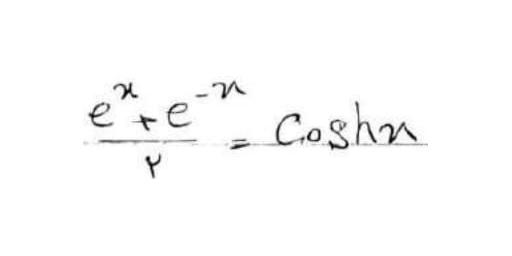 (e^x + e^-x) / ۲ = Coshx